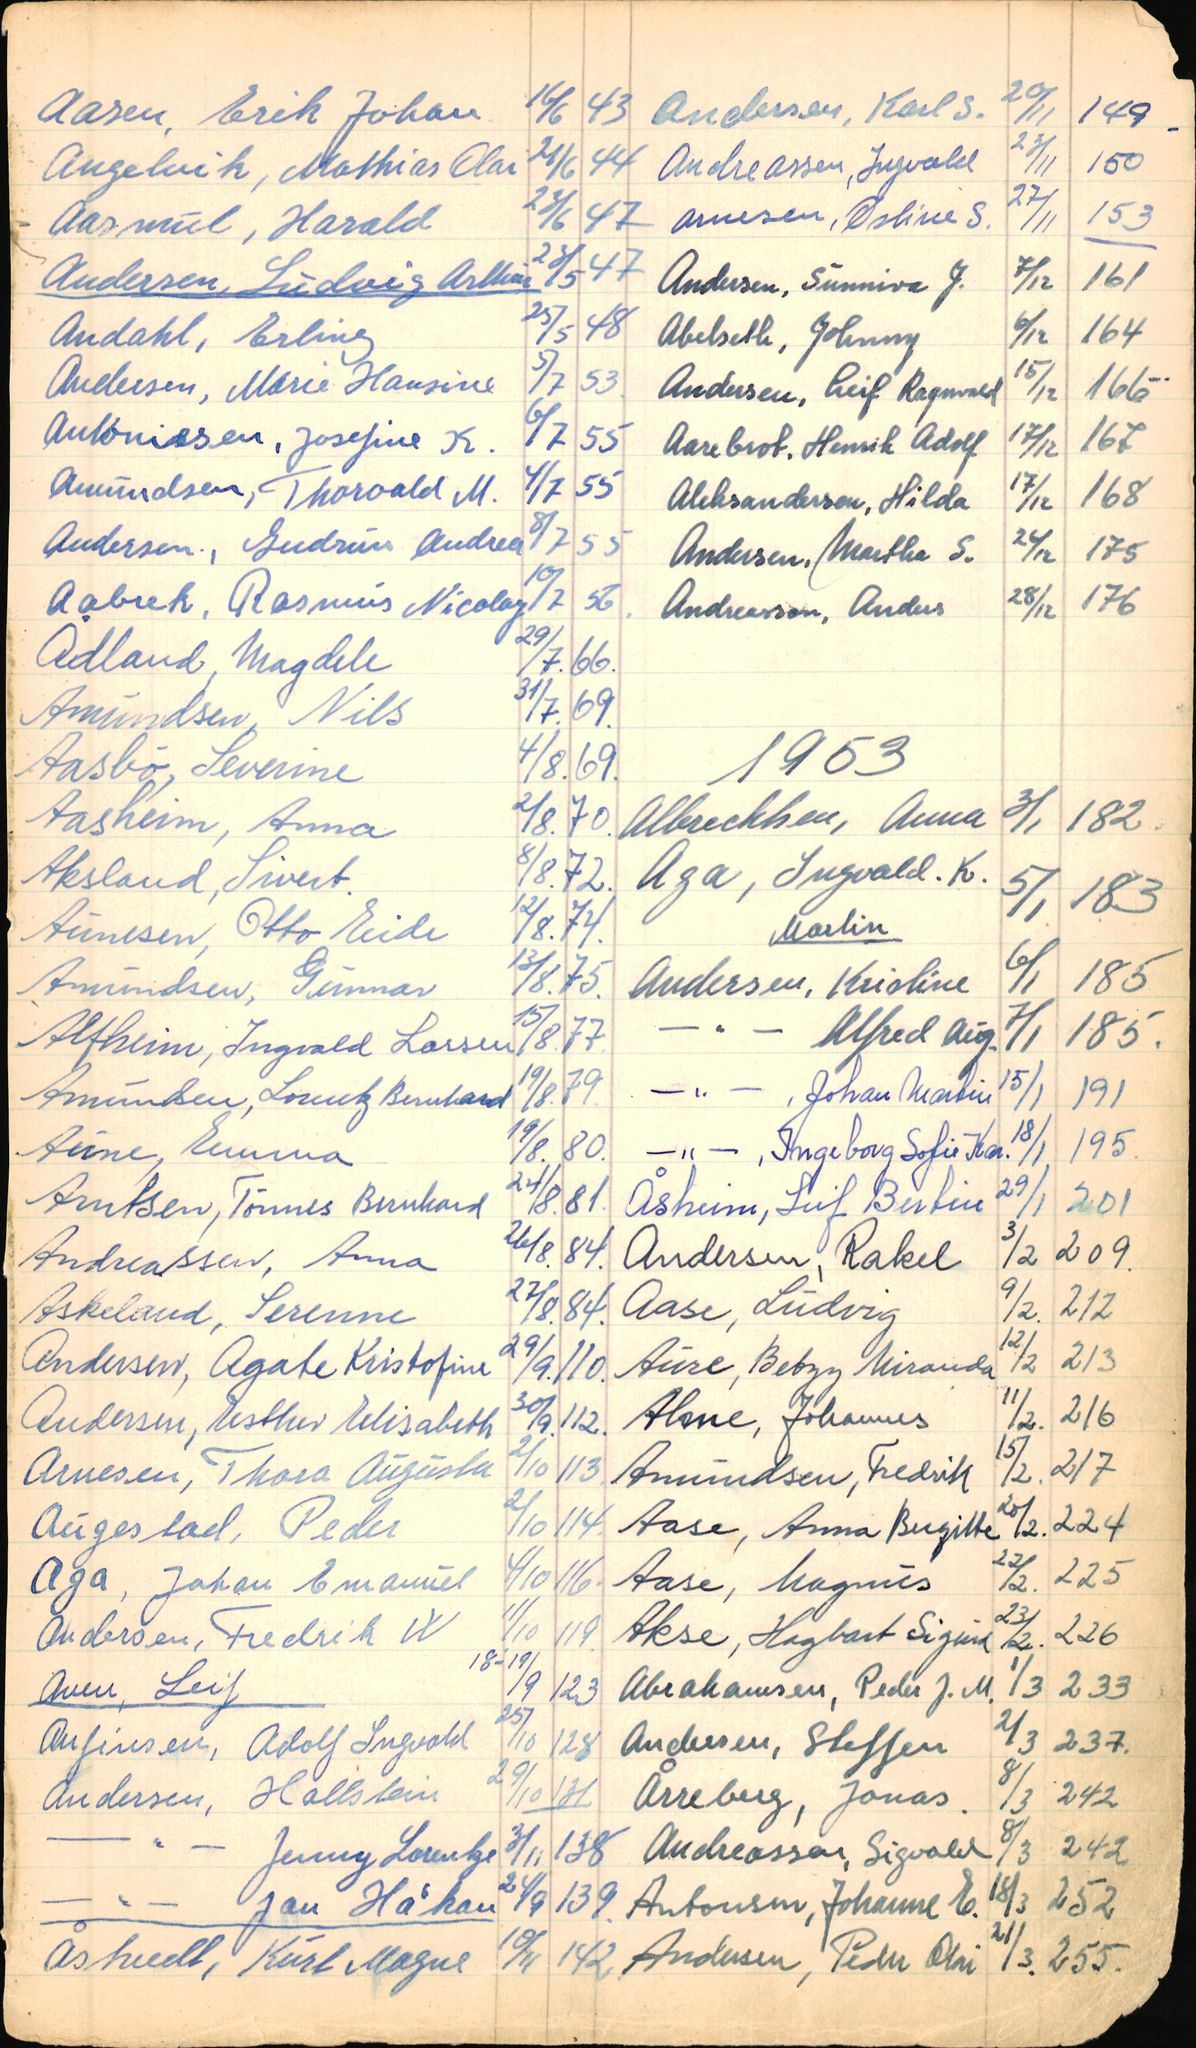 Aasen, Erik Johan 14/6 43
Angelvik, Mathias Olai 21/6 44
Aasmul, Harald 23/6 47
Andersen, Ludvig Arthur 23/5 47
Andahl, Erling 25/5 48
Andersen, Marie Hansine 5/7 53
Antoniesen, Josefine K. 6/7 55
Amundsen, Thorvald M. 4/7 55
Andersen, Gudrun Andrea 8/7 55
Aabrek, Rasmus Nicolay 10/7 56.
Ådland, Magdele 29/7. 66.
Amundsen, Nils 31/7. 69.
Aasbö, Severine 4/8. 69.
Aasheim, Anna 2/8. 70.
Aksland, Sivert. 8/8. 72.
Aunesen, Otto Eide 12/8. 74.
Amundsen, Gunnar 13/8. 75.
Alfheim, Ingvald Larsen 15/8. 77.
Amundsen, Lorentz Bernhard 19/8. 79.
Aune, Emma 19/8. 80.
Arntsen, Tönnes Bernhard 24/8. 81.
Andreassen, Anna 26/8. 84.
Askeland, Serenne 27/8. 84.
Andersen, Agate Kristofine 29/9. 110.
Andersen, Esther Elisabeth 30/9. 112.
Arnesen, Thora Augusta 2/10 113
Augestad, Peder 2/10 114.
Aga, Johan Emanuel 4/10 116.
Andersen, Fredrik W 11/10 119.
Aven, Leif 18-19/9 123
Anfinsen, Adolf Ingvald 25/10 128
Andersen, Hallstein 29/10 131
— " — Jenny Lorentze 3/11 138
— " — Jan Håkan 24/9 139.
Åstvedt, Kurt Magne 10/11 142
Andersen, Karl S. 20/11 149.
Andreassen, Ingvald 23/11 150
Arnesen, Ostine S. 27/11 153
Andersen, Sunniva J. 7/12 161
Abelseth, Johnny 6/12 164
Andersen, Leif Ragnvald 15/12 166
Aarebrot, Henrik Adolf 17/12 167
Aleksandersen, Hilda 17/12 168
Andersen, Martha S. 24/12 175
Andreasson, Anders 28/12 176
1953
Albrechtsen, Anna 3/1 182.
Aga, Ingvald. K. 5/1 183
Martin
Andersen, Kristine 6/1 185
— " — Alfred Aug. 7/1 185.
— " — , Johan Martin 15/1 191
— " — , Ingeborg Sofie Kar. 18/1 195.
Åsheim, Leif Bertin 29/1 201
Andersen, Rakel 3/2 209.
Aase, Ludvig 9/2. 212
Aure, Betzy Miranda 12/2 213
Alme, Johannes 11/2. 216
Amundsen, Fredrik 15/2. 217
Aase, Anna Bergitte 20/2. 224
Aase, Magnus 22/2. 225
Akse, Hagbart Sigurd 23/2. 226
Abrahamsen, Peder J. M. 1/3 233
Andersen, Steffen 2/3 237.
Årreberg, Jonas. 8/3 242
Andreassen, Sigvald 8/3 242
Antonsen, Johanne E. 18/3 252
Andersen, Peder Olai 21/3. 255.